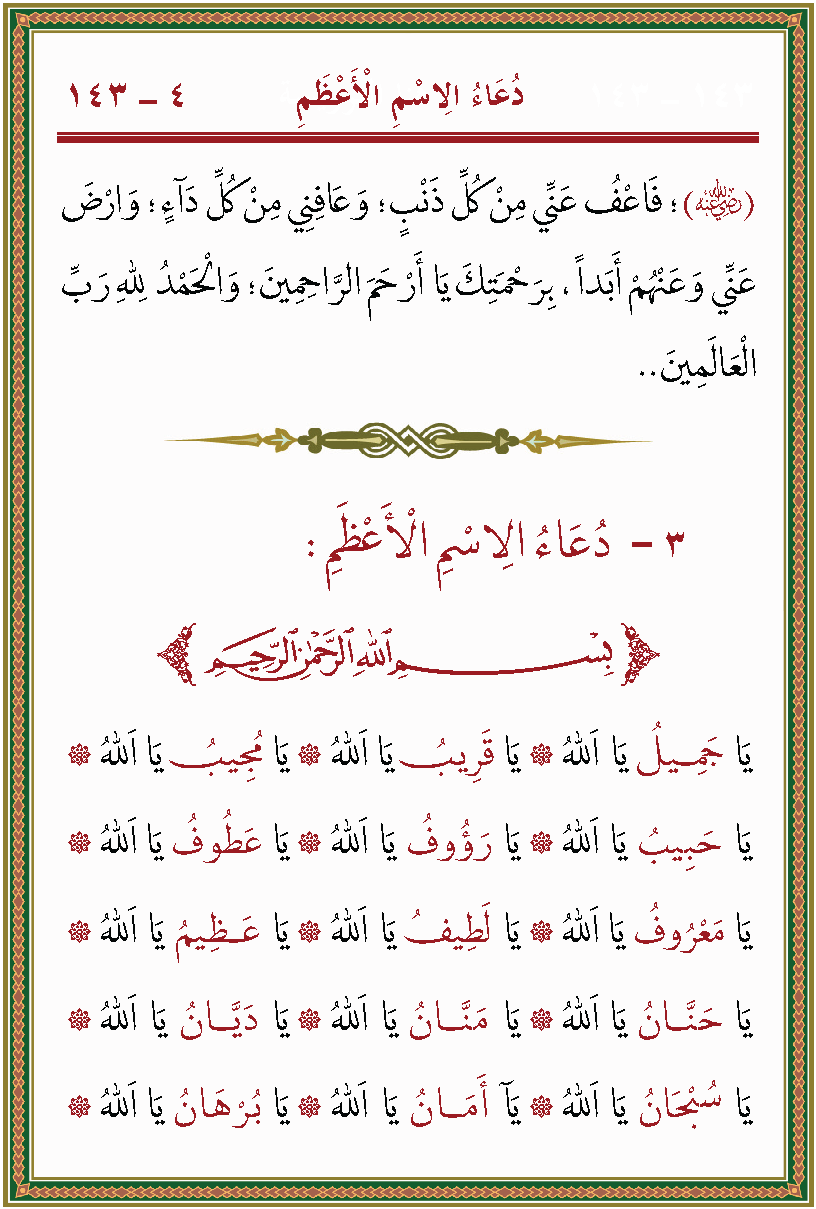 دُعَاءُ الِاسْمِ الْأَعْظَمِ ٤ – ١٤٣
(رضي الله عنه) ؛ فَاعْفُ عَنِّي مِنْ كُلِّ ذَنْبٍ ؛ وَعَافِنِي مِنْ كُلِّ دَآءٍ ؛ وَارْضَ
عَنِّي وَعَنْهُمْ أَبَداً ، بِرَحْمَتِكَ يَا أَرْحَمَ الرَّاحِمِينَ ؛ وَالْحَمْدُ لِلهِ رَبِّ
الْعَالَمِينَ..
٣ – دُعَاءُ الِاسْمِ الْأَعْظَمِ :
بِسْمِ اللهِ الرَّحْمٰنِ الرَّحِيمِ
يَا جَمِيلُ يَا اَللهُ ۞ يَا قَرِيبُ يَا اَللهُ ۞ يَا مُجِيبُ يَا اَللهُ ۞
يَا حَبِيبُ يَا اَللهُ ۞ يَا رَؤُوفُ يَا اَللهُ ۞ يَا عَطُوفُ يَا اَللهُ ۞
يَا مَعْرُوفُ يَا اَللهُ ۞ يَا لَطِيفُ يَا اَللهُ ۞ يَا عَظِيمُ يَا اَللهُ ۞
يَا حَنَّانُ يَا اَللهُ ۞ يَا مَنَّانُ يَا اَللهُ ۞ يَا دَيَّانُ يَا اَللهُ ۞
يَا سُبْحَانُ يَا اَللهُ ۞ يَآ أَمَانُ يَا اَللهُ ۞ يَا بُرْهَانُ يَا اَللهُ ۞